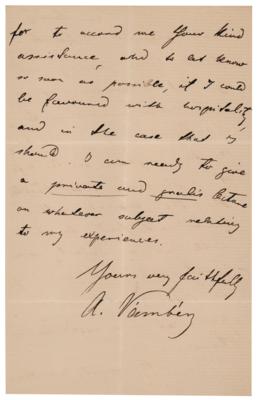 for to accord me your kind
assistance, and to let know
as soon as possible, if I could
be favoured with hospitality,
and in the case that I
should. I am ready to give
a private and gratis lecture
on whatever subject relating
to my experiences.
Yours very faithfully
A. Vámbéry